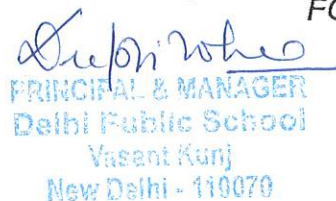 FO
PRINCIPAL & MANAGER
Delhi Public School
Vasant Kunj
New Delhi - 110070